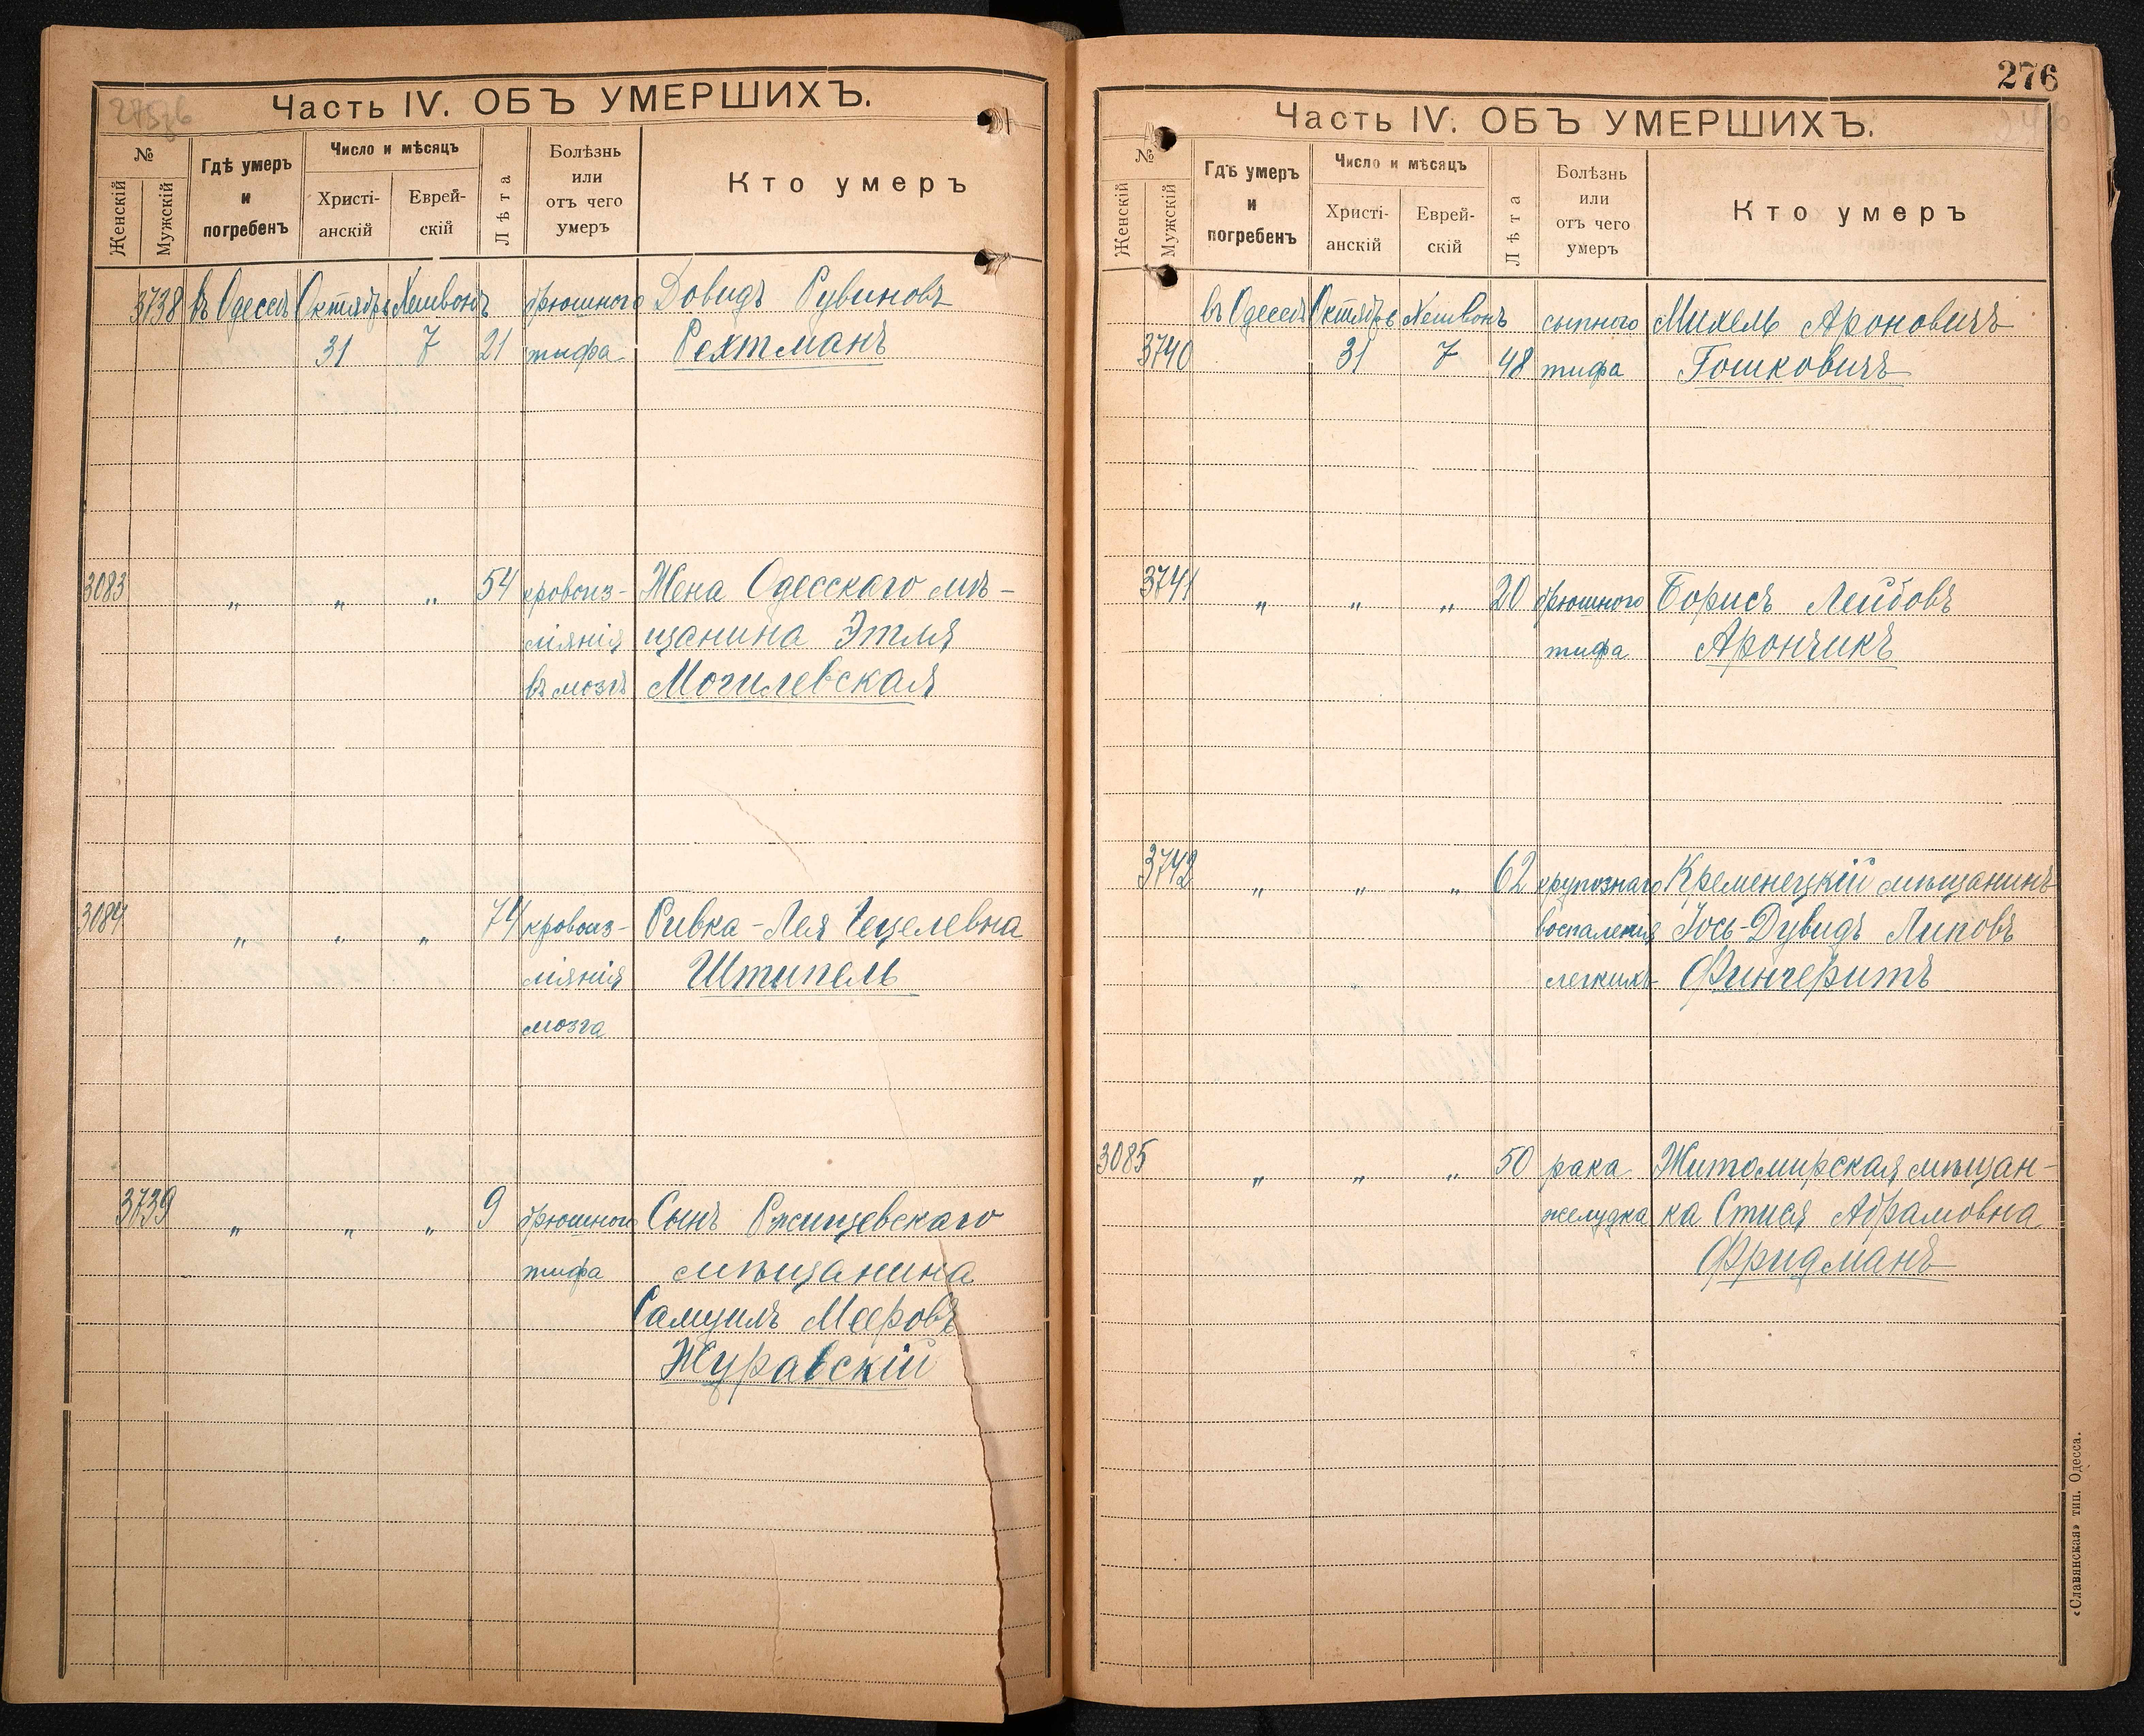 Часть IV. ОБЪ УМЕРШИХЪ.
№
Женскій
Мужскій
Гдѣ умеръ
и
погребенъ
Число и мѣсяцъ
Христі-
анскій
Еврей-
скій
Лѣта
Болѣзнь
или
отъ чего
умеръ
Кто умеръ
3738 въ Одессѣ Октябрь Хешвонъ брюшного Довидъ Рувиновъ
31 7 21 тифа Рехтманъ
3083 „ „ „ 54 кровоиз- Жена Одесскаго мѣ-
ліянія щанина Этля
въ мозгъ Могилевская
3084 „ „ „ 74 кровоиз- Ривка-Лея Гецелевна
ліянія Штипель
мозга
3739 „ „ „ 9 брюшного Сынъ Ржищевскаго
тифа мѣщанина
Самуилъ Мееровъ
Журавскій
276
Часть IV. ОБЪ УМЕРШИХЪ.
№
Женскій
Мужскій
Гдѣ умеръ
и
погребенъ
Число и мѣсяцъ
Христі-
анскій
Еврей-
скій
Лѣта
Болѣзнь
или
отъ чего
умеръ
Кто умеръ
въ Одессѣ Октябрь Хешвонъ сыпного Михель Ароновичъ
3740 31 7 48 тифа Гошковичъ
3741 „ „ „ 20 брюшного Борисъ Лейбовъ
тифа Арончикъ
3742 „ „ „ 62 крупознаго Кременецкій мѣщанинъ
воспаленія Іось-Дувидъ Липовъ
легкихъ Фингеритъ
3085 „ „ „ 50 рака Житомирская мѣщан-
желудка ка Стися Абрамовна
Фридманъ
«Славянская» тип. Одесса.